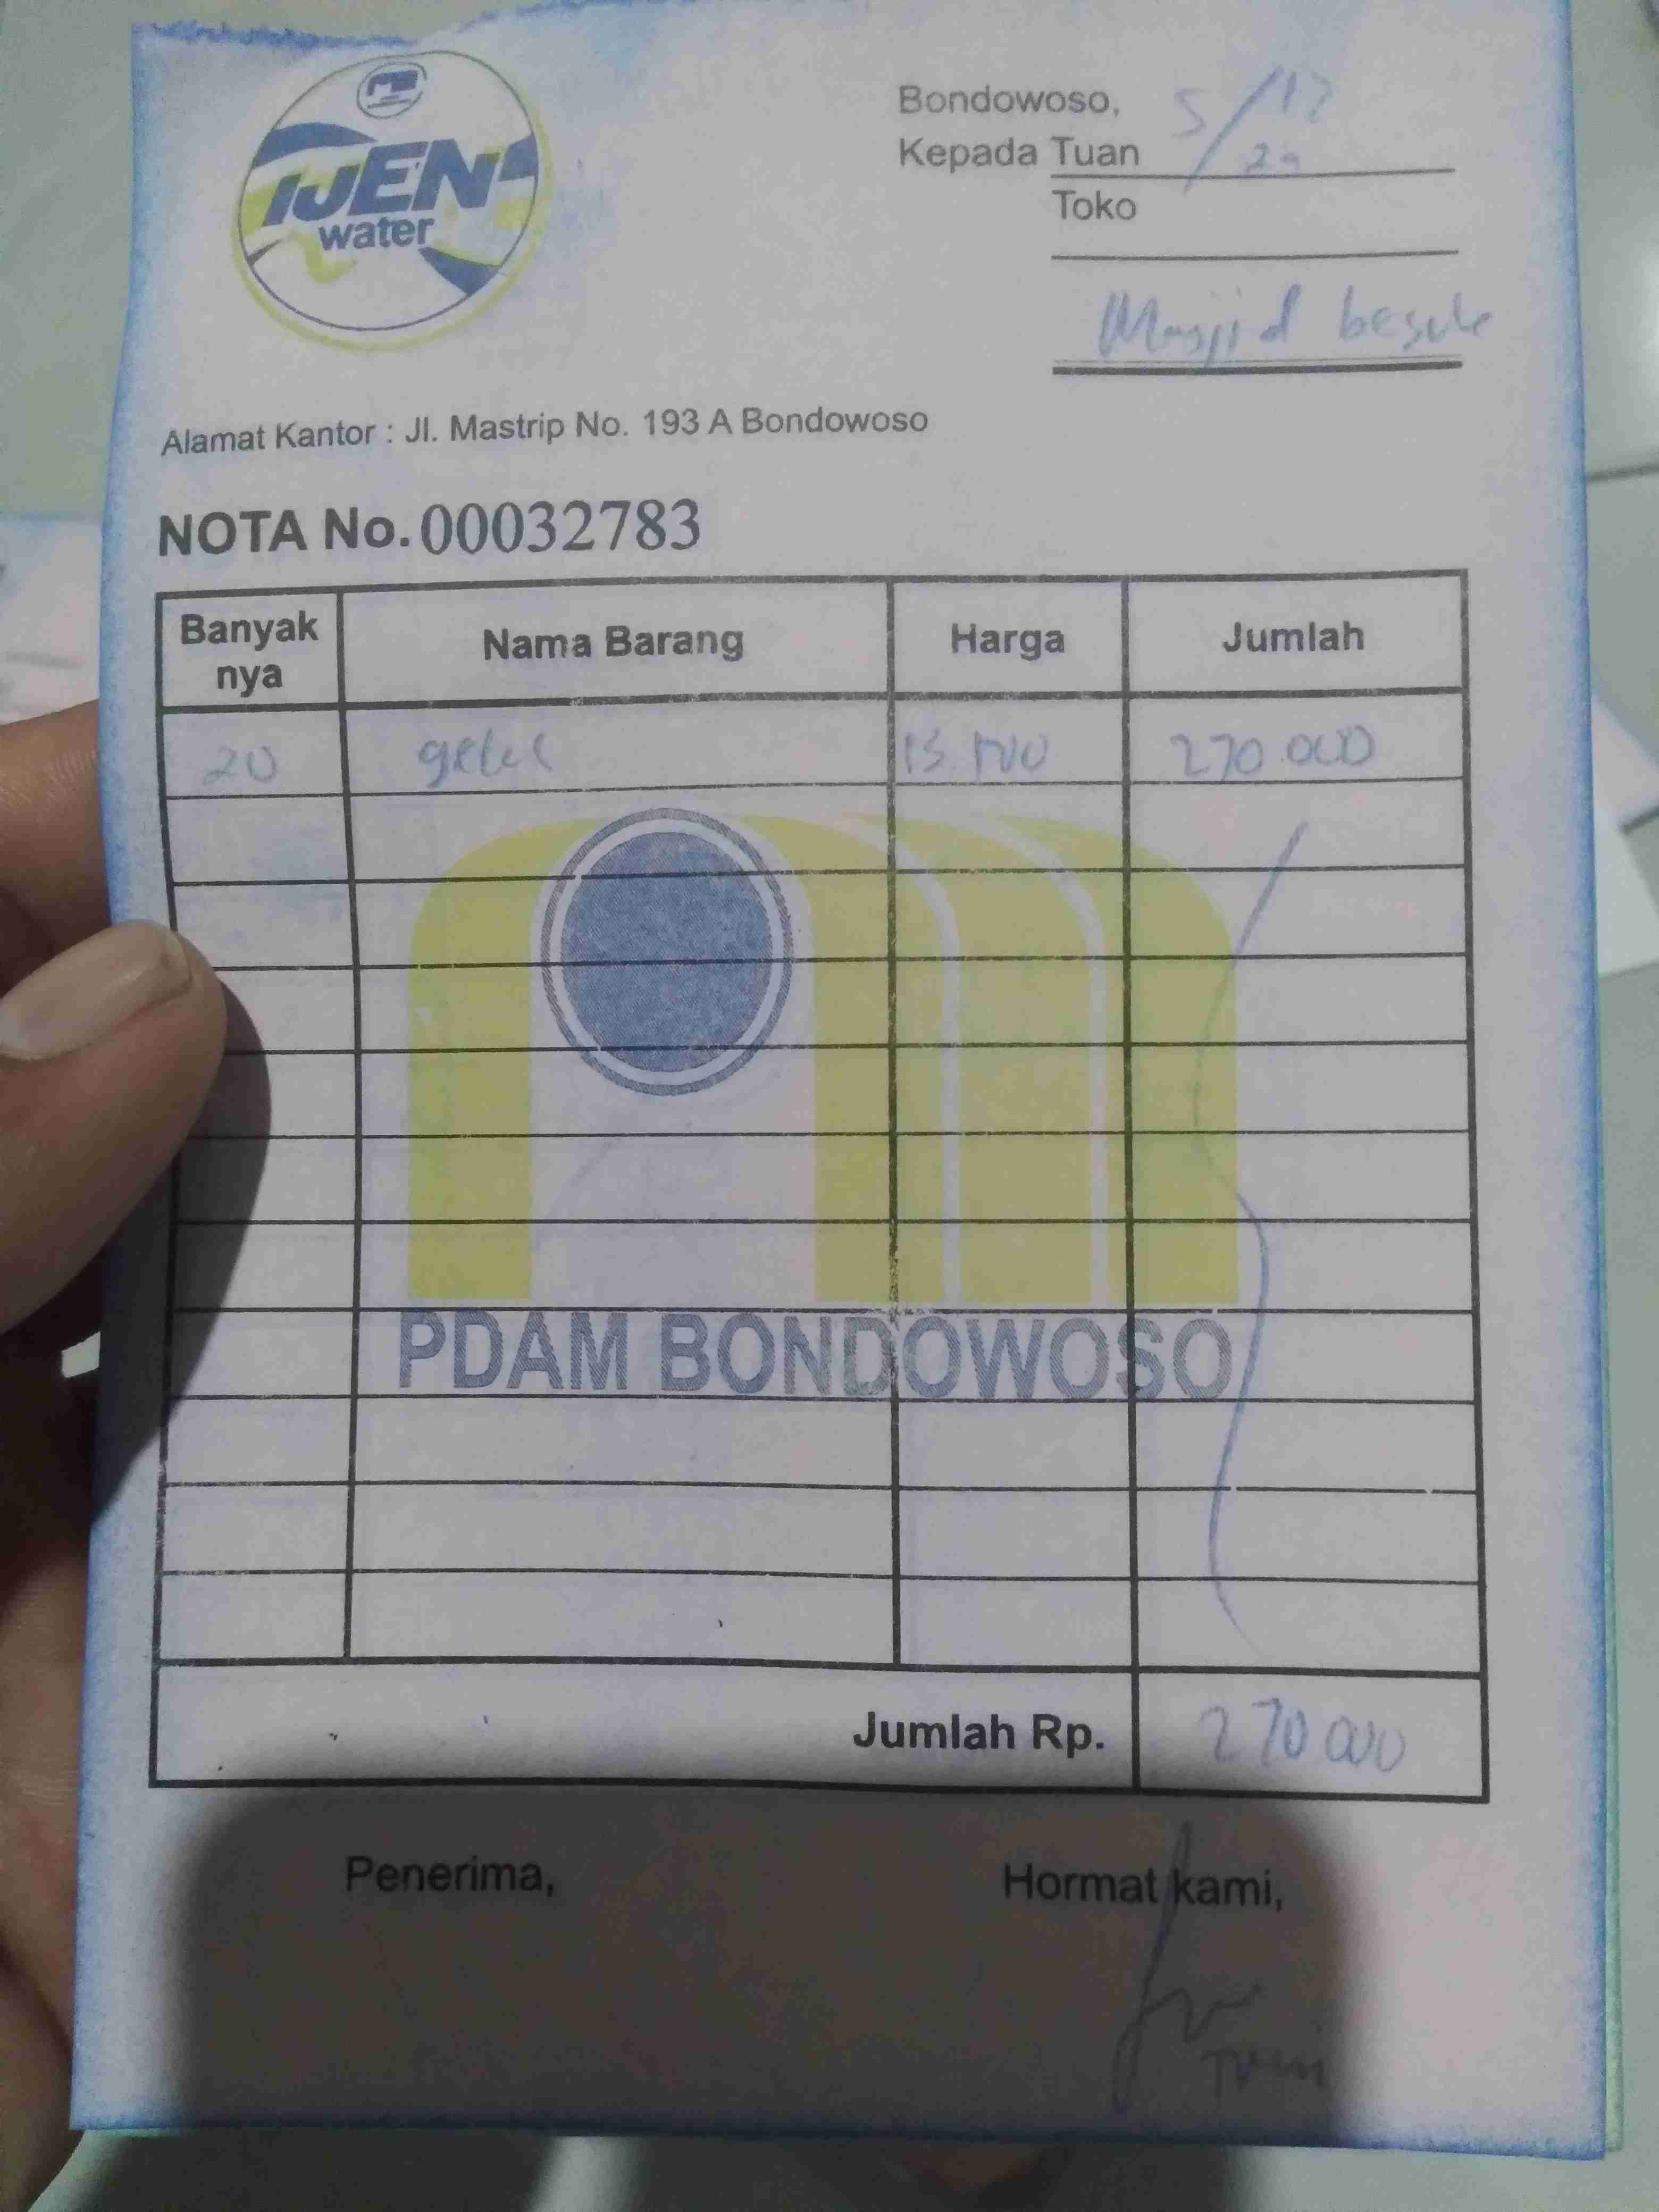 IJEN
water
Bondowoso, 5/12
Kepada Tuan
Toko
Masjid besuk
Alamat Kantor : Jl. Mastrip No. 193 A Bondowoso
NOTA No. 00032783
Banyak nya Nama Barang Harga Jumlah
20 gelas 13.500 270.000
PDAM BONDOWOSO
Jumlah Rp. 270 000
Penerima, Hormat kami,